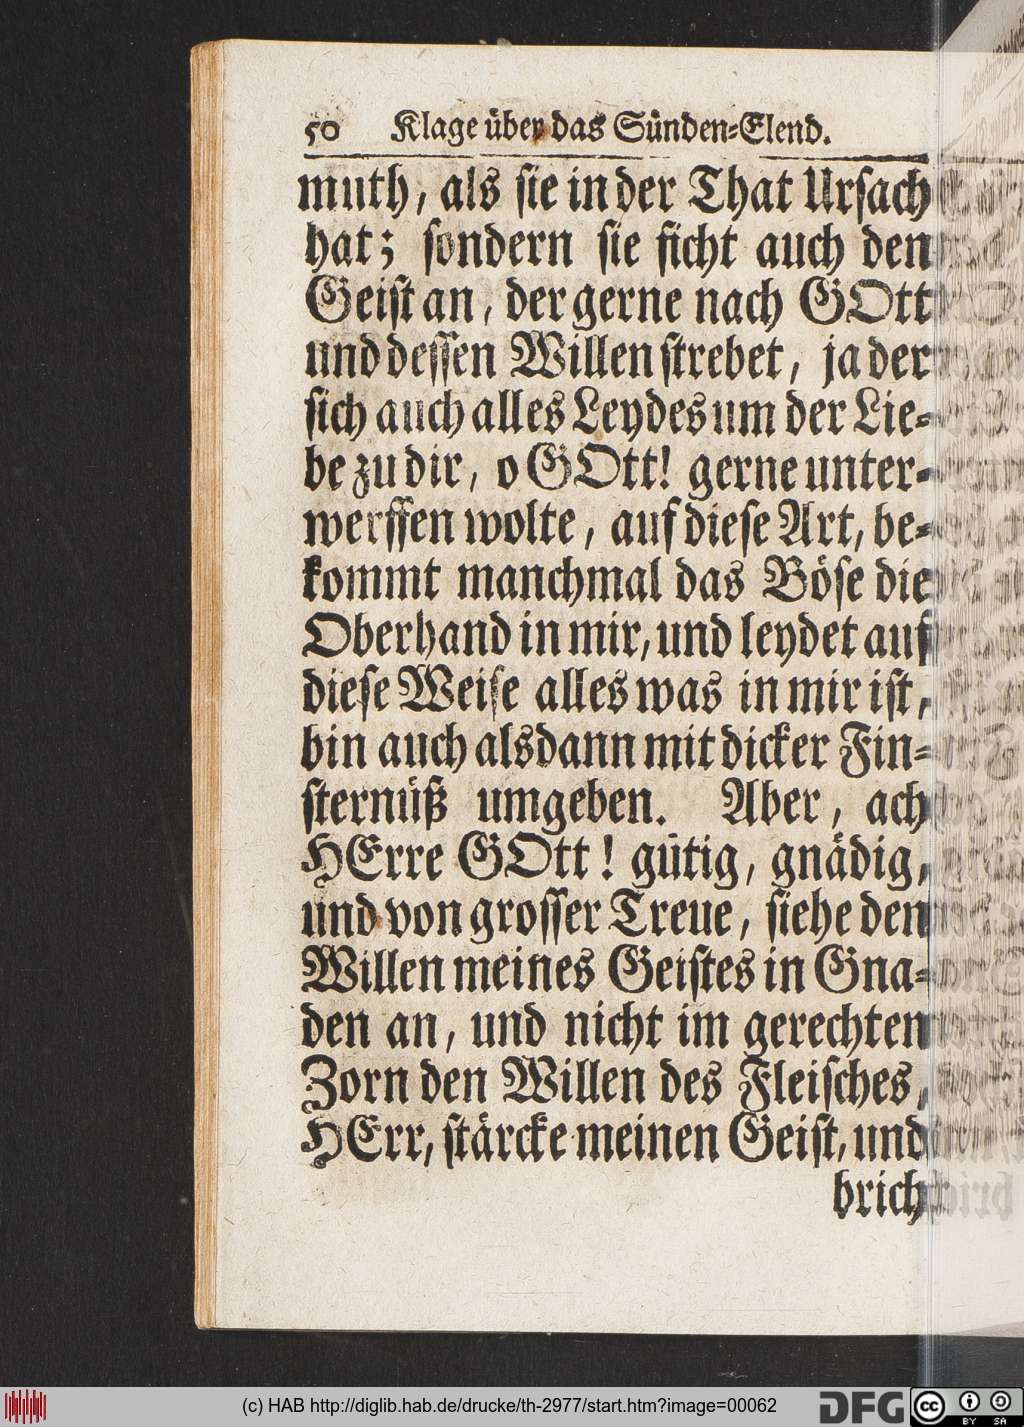 50 Klage über das Sünden-Elend.
muth, als sie in der That Ursach
hat; sondern sie ficht auch den
Geist an, der gerne nach GOtt
und dessen Willen strebet, ja der
sich auch alles Leydes um der Lie-
be zu dir, o GOtt! gerne unter-
werffen wolte, auf diese Art, be-
kommt manchmal das Böse die
Oberhand in mir, und leydet auf
diese Weise alles was in mir ist,
bin auch alsdann mit dicker Fin-
sternüß umgeben. Aber, ach
HErre GOtt! gütig, gnädig,
und von grosser Treue, siehe den
Willen meines Geistes in Gna-
den an, und nicht im gerechten
Zorn den Willen des Fleisches,
HErr, stärcke meinen Geist, und
brich
(c) HAB http://diglib.hab.de/drucke/th-2977/start.htm?image=00062
DFG
cc BY SA